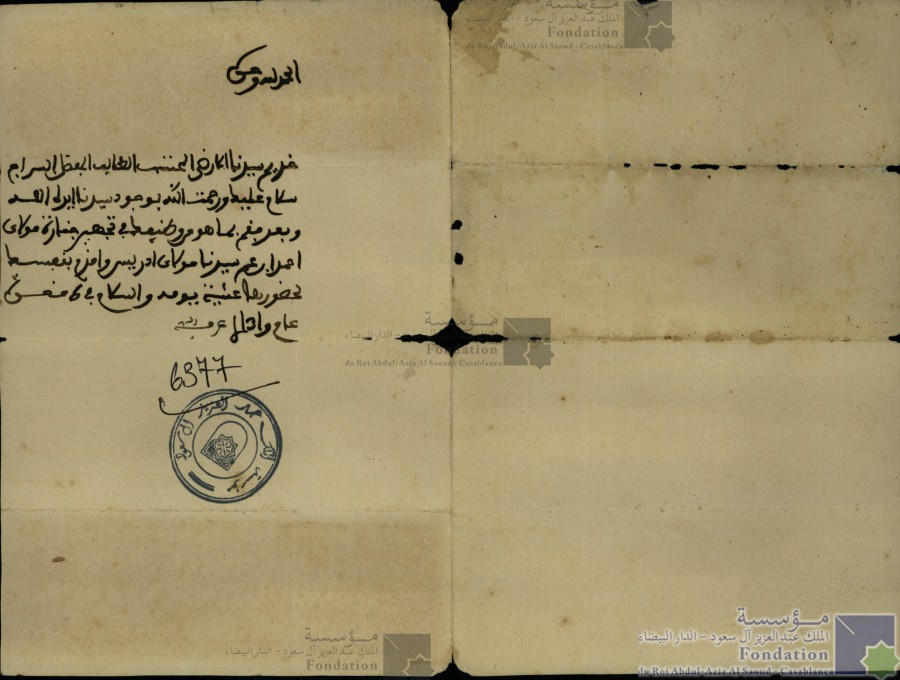 الحمد لله وحده
خديم سيدنا الارضى المحتسب الطالب المفضل السراج
سلام عليك ورحمت الله بوجود سيدنا ايده الله
وبعد فقم بما هو من وظيفك في تجهيز جنازة مولاي
عم سيدنا مولاي ادريس واقدم بنفسك
لحضورها عشية يومه والسلام في 6
عام
6377
مؤسسة الملك عبد العزيز آل سعود
مؤسسة
الملك عبد العزيز آل سعود - الدار البيضاء
Fondation
du Roi Abdul-Aziz Al Saoud - Casablanca
مؤسسة
الملك عبد العزيز آل سعود - الدار البيضاء
Fondation
du Roi Abdul-Aziz Al Saoud - Casablanca
مؤسسة
الملك عبد العزيز آل سعود - الدار البيضاء
Fondation
مؤسسة
الملك عبد العزيز آل سعود - الدار البيضاء
Fondation
du Roi Abdul-Aziz Al Saoud - Casablanca